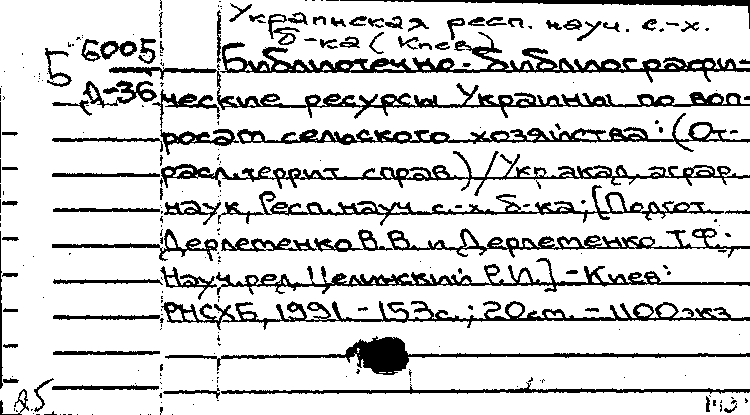 Украинская респ. науч. с.-х.
б-ка (Киев)
Б 6005
Д-36
Библиотечно-библиографи-
ческие ресурсы Украины по воп-
росам сельского хозяйства: (От-
расл.террит. справ.) / Укр. акад. аграр.
наук, Респ. науч. с.-х. б-ка; [Подгот.
Дерлеменко В.В. и Дерлеменко Т.Ф.;
Науч. ред. Целинский Р.И.] - Киев:
РНСХБ, 1991. - 153 с.; 20 см. - 1100 экз
25